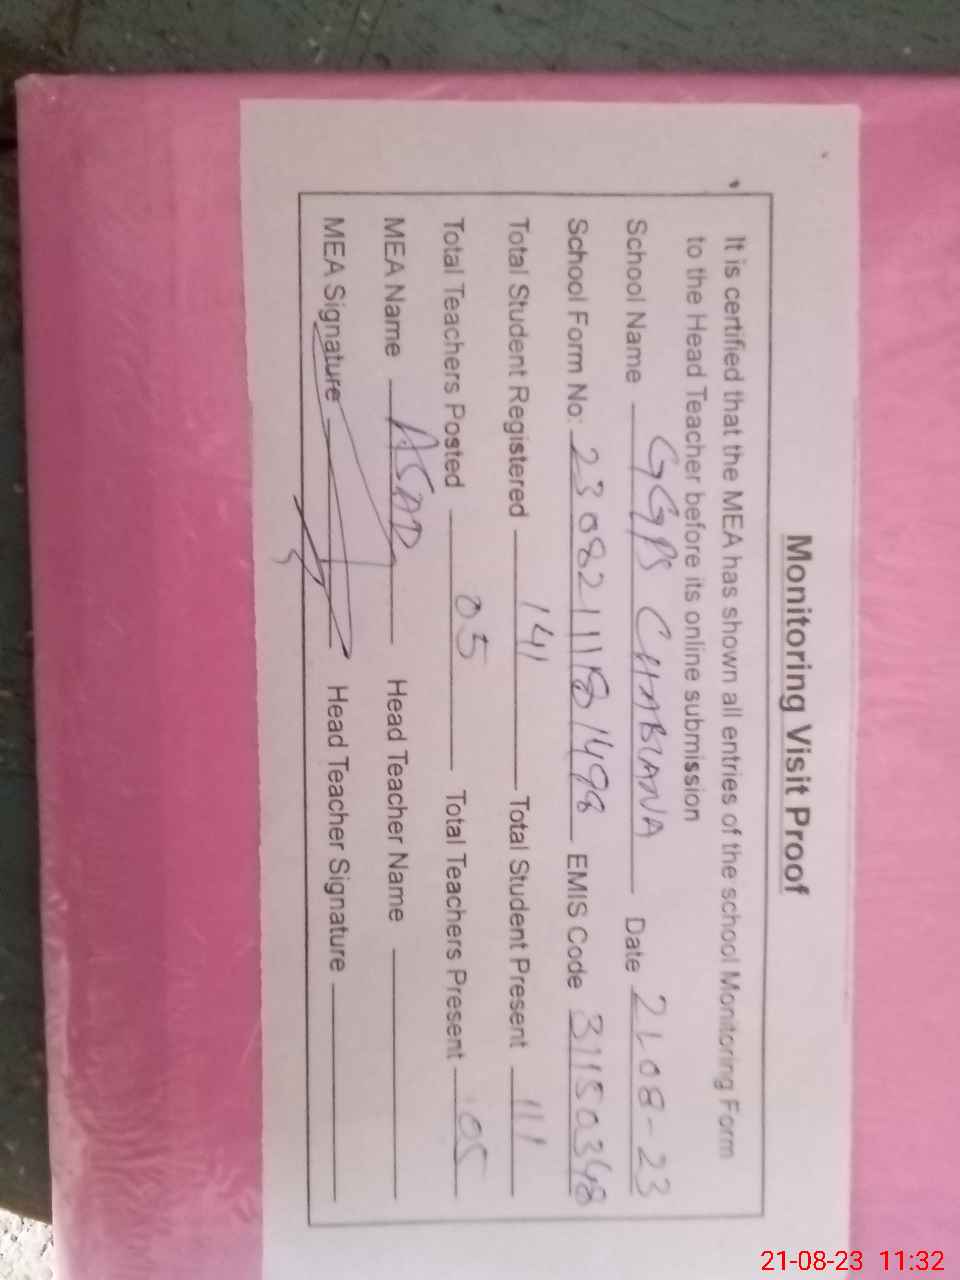 Monitoring Visit Proof
It is certified that the MEA has shown all entries of the school Monitoring Form
to the Head Teacher before its online submission
School Name GGPS CHABIANA Date 21-08-23
School Form No: 2308211181498 EMIS Code 31150348
Total Student Registered 141 Total Student Present 111
Total Teachers Posted 05 Total Teachers Present 05
MEA Name ASAD Head Teacher Name
MEA Signature Head Teacher Signature
21-08-23 11:32